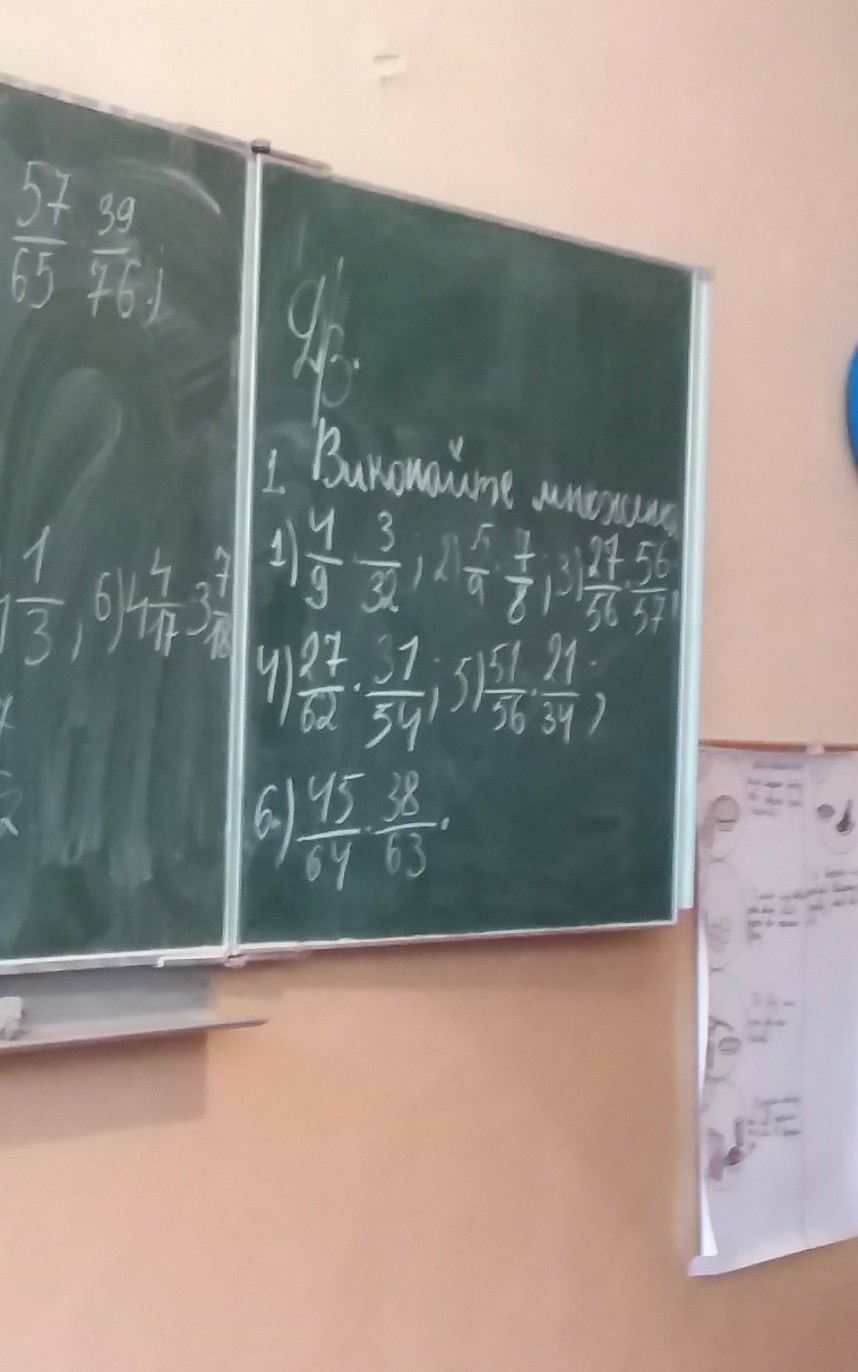 57/65 · 39/76;
1/3, 6) 4 4/17 · 3 7/18
Д/з.
1. Виконайте множення
1) 4/9 · 3/32; 2) 5/9 · 7/8; 3) 27/56 · 56/57;
4) 27/62 · 31/54; 5) 51/56 · 21/34;
6) 45/64 · 38/63.